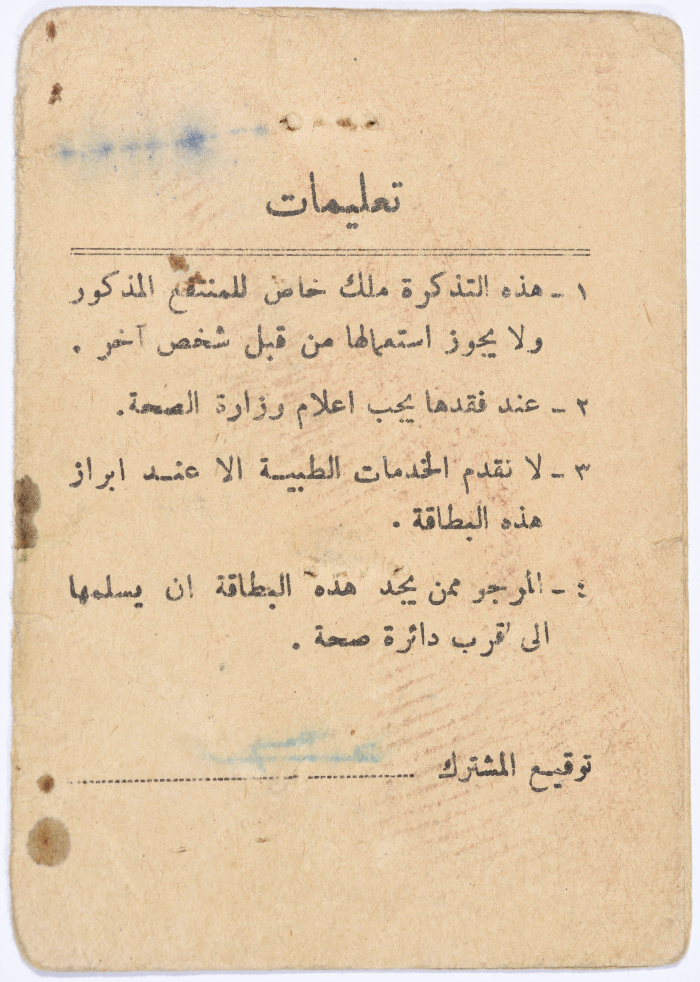 تعليمات
١ - هذه التذكرة ملك خاص للمنتفع المذكور
ولا يجوز استعمالها من قبل شخص آخر .
٢ - عند فقدها يجب اعلام وزارة الصحة .
٣ - لا نقدم الخدمات الطبيــة الا عنــد ابراز
هذه البطاقة .
٤ - المرجو ممن يجد هذه البطاقة ان يسلمها
الى اقرب دائرة صحة .
توقيــع المشترك